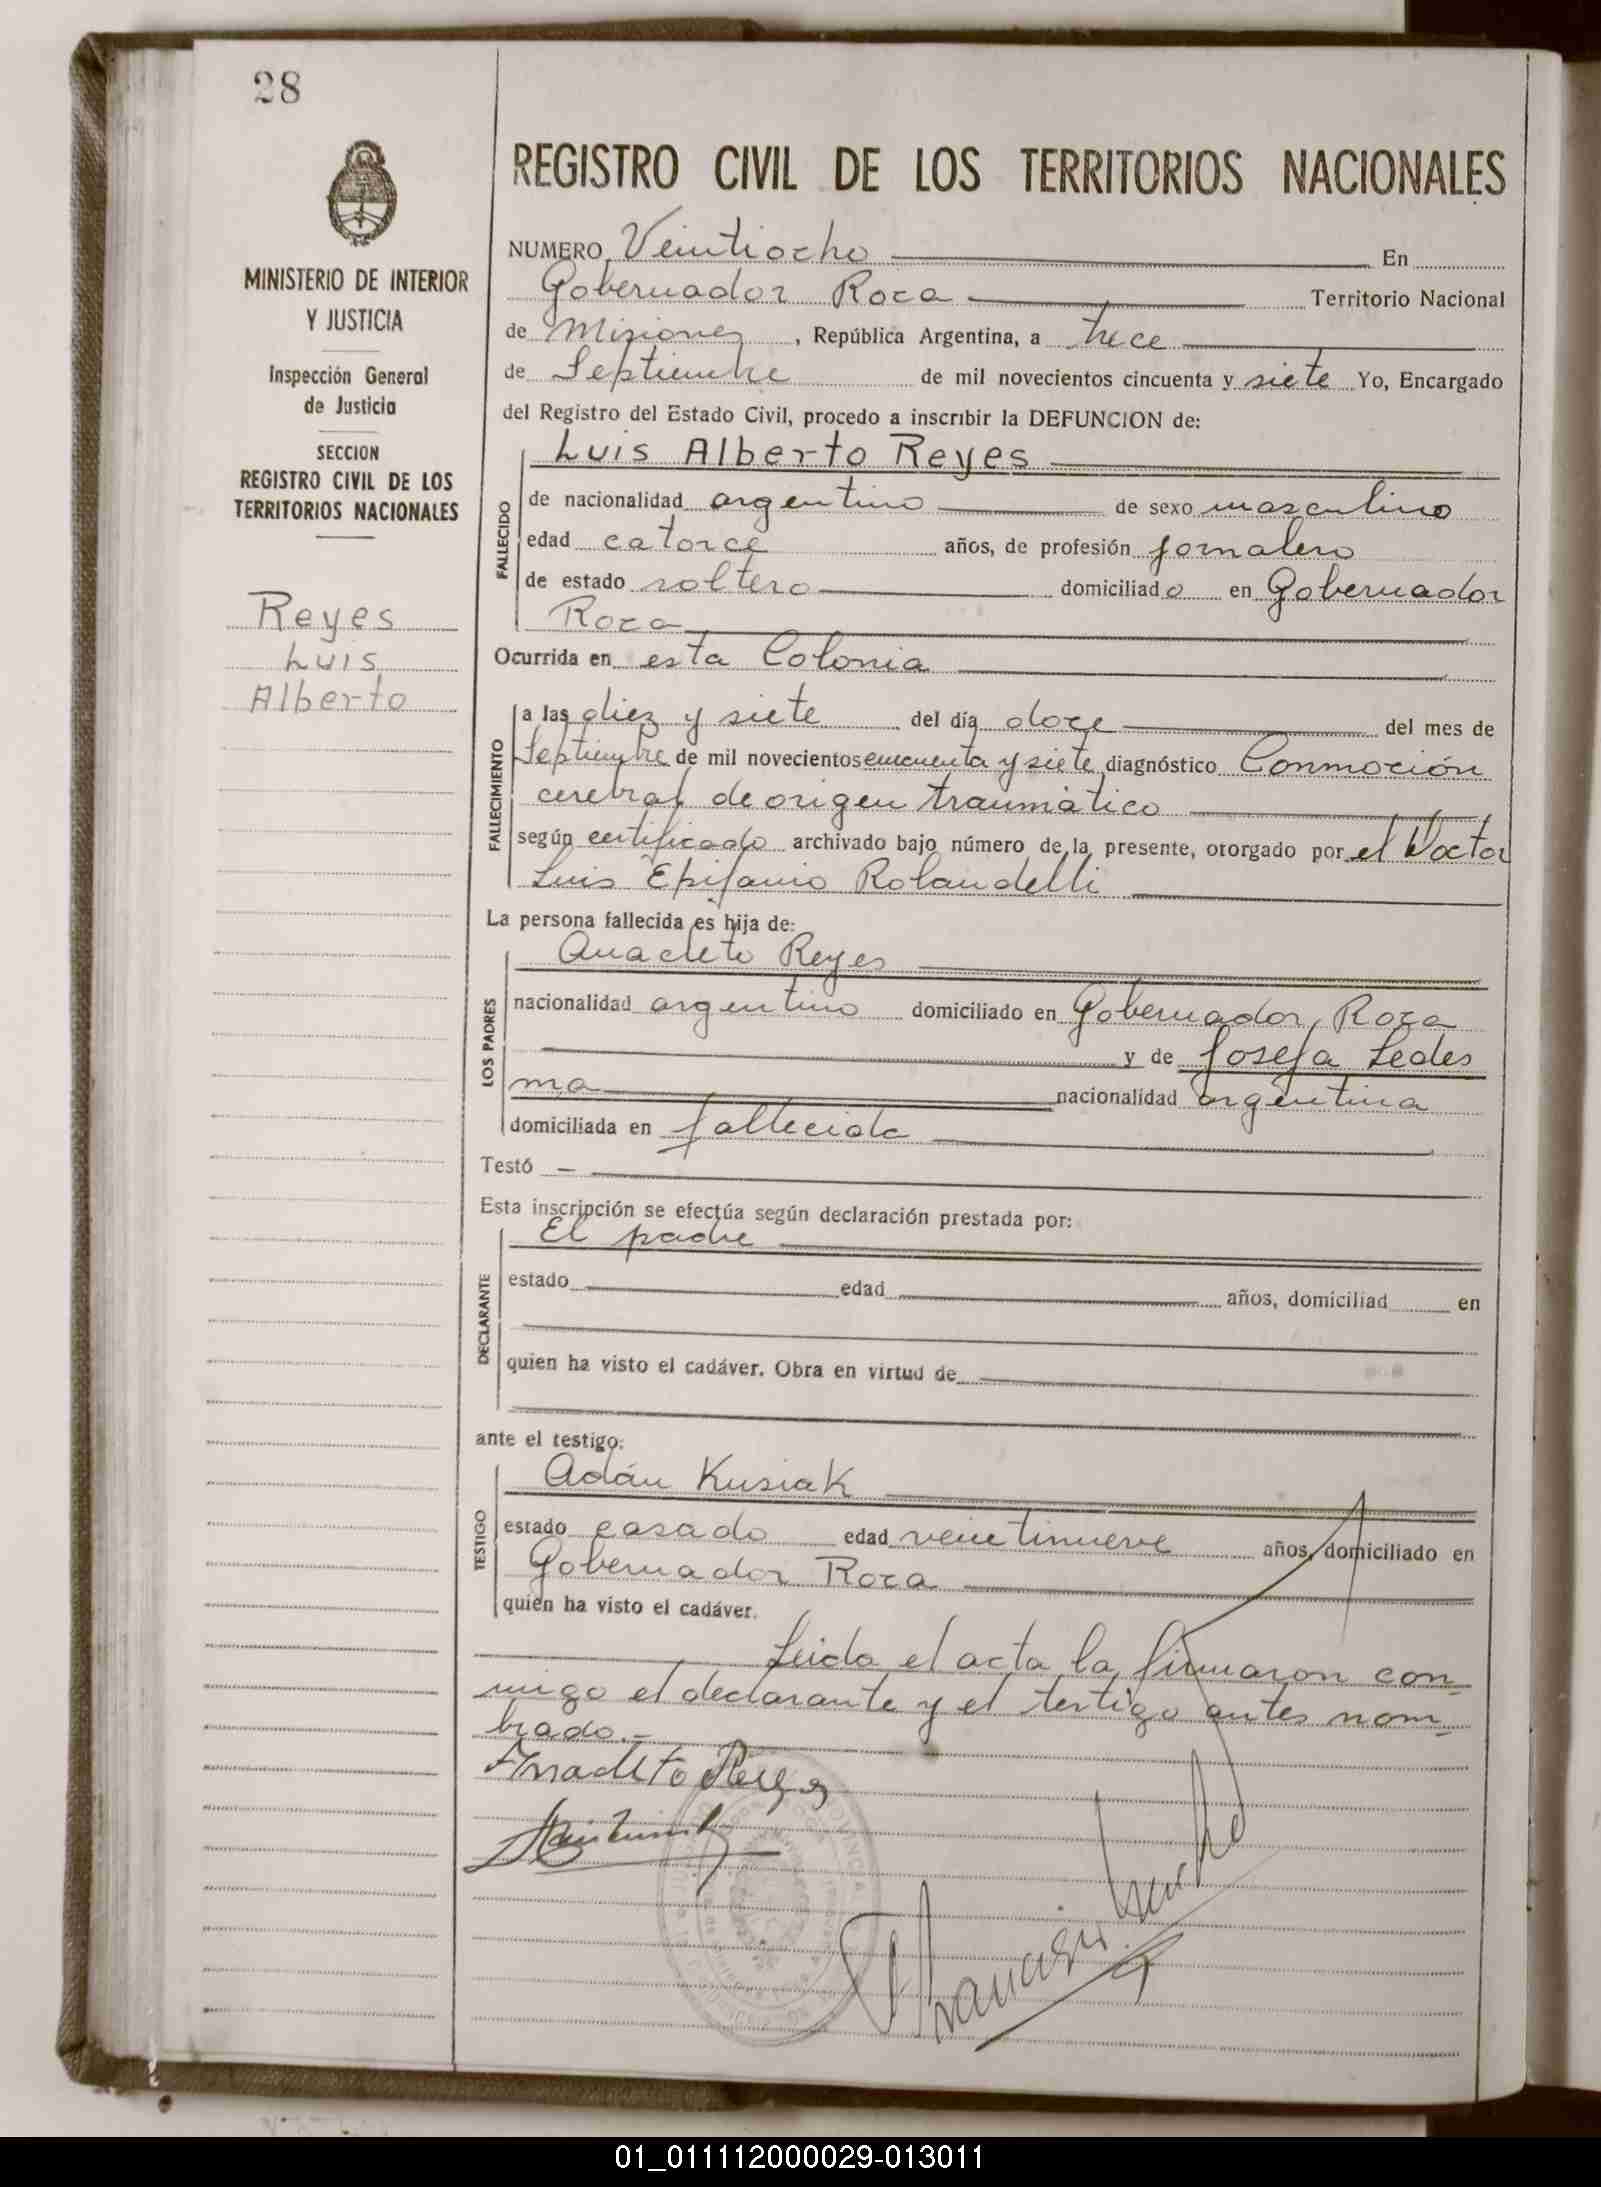 28
MINISTERIO DE INTERIOR
Y JUSTICIA
Inspección General
de Justicia
SECCION
REGISTRO CIVIL DE LOS
TERRITORIOS NACIONALES
Reyes
Luis
Alberto
REGISTRO CIVIL DE LOS TERRITORIOS NACIONALES
NUMERO Veintiocho En
Gobernador Roca Territorio Nacional
de Misiones, República Argentina, a trece
de Septiembre de mil novecientos cincuenta y siete Yo, Encargado
del Registro del Estado Civil, procedo a inscribir la DEFUNCION de:
Luis Alberto Reyes
FALLECIDO
de nacionalidad argentino de sexo masculino
edad catorce años, de profesión jornalero
de estado soltero domiciliado en Gobernador
Roca
Ocurrida en esta Colonia
FALLECIMIENTO
a las diez y siete del día doce del mes de
Septiembre de mil novecientos cincuenta y siete, diagnóstico Conmoción
cerebral de origen traumático
según certificado archivado bajo número de la presente, otorgado por el Doctor
Luis Epifanio Rolandelli
La persona fallecida es hija de:
LOS PADRES
Anacleto Reyes
nacionalidad argentino domiciliado en Gobernador Roca
y de Josefa Ledes
ma nacionalidad argentina
domiciliada en fallecida
Testó —
Esta inscripción se efectúa según declaración prestada por:
DECLARANTE
El padre
estado edad años, domiciliad en
quien ha visto el cadáver. Obra en virtud de
ante el testigo:
TESTIGO
Adán Kusiak
estado casado edad veintinueve años, domiciliado en
Gobernador Roca
quien ha visto el cadáver.
Leida el acta la firmaron con-
migo el declarante y el testigo antes nom-
brado.-
Anacleto Reyes
01_011112000029-013011